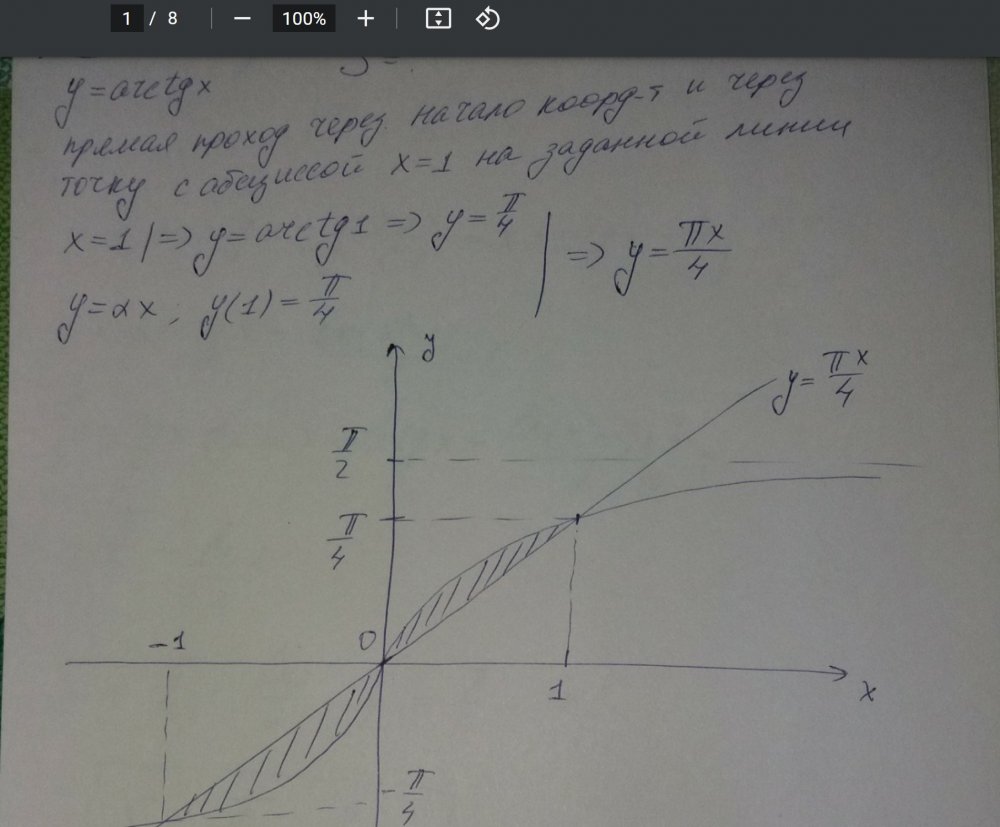 1 / 8 — 100% +
y = arctg x
прямая проход через начало коорд-т и через
точку с абсциссой x=1 на заданной линии
x=1 | => y = arctg 1 => y = π/4
y = αx ; y(1) = π/4 | => y = πx/4
y
y = πx/4
π/2
π/4
-1 0
1 x
-π/4